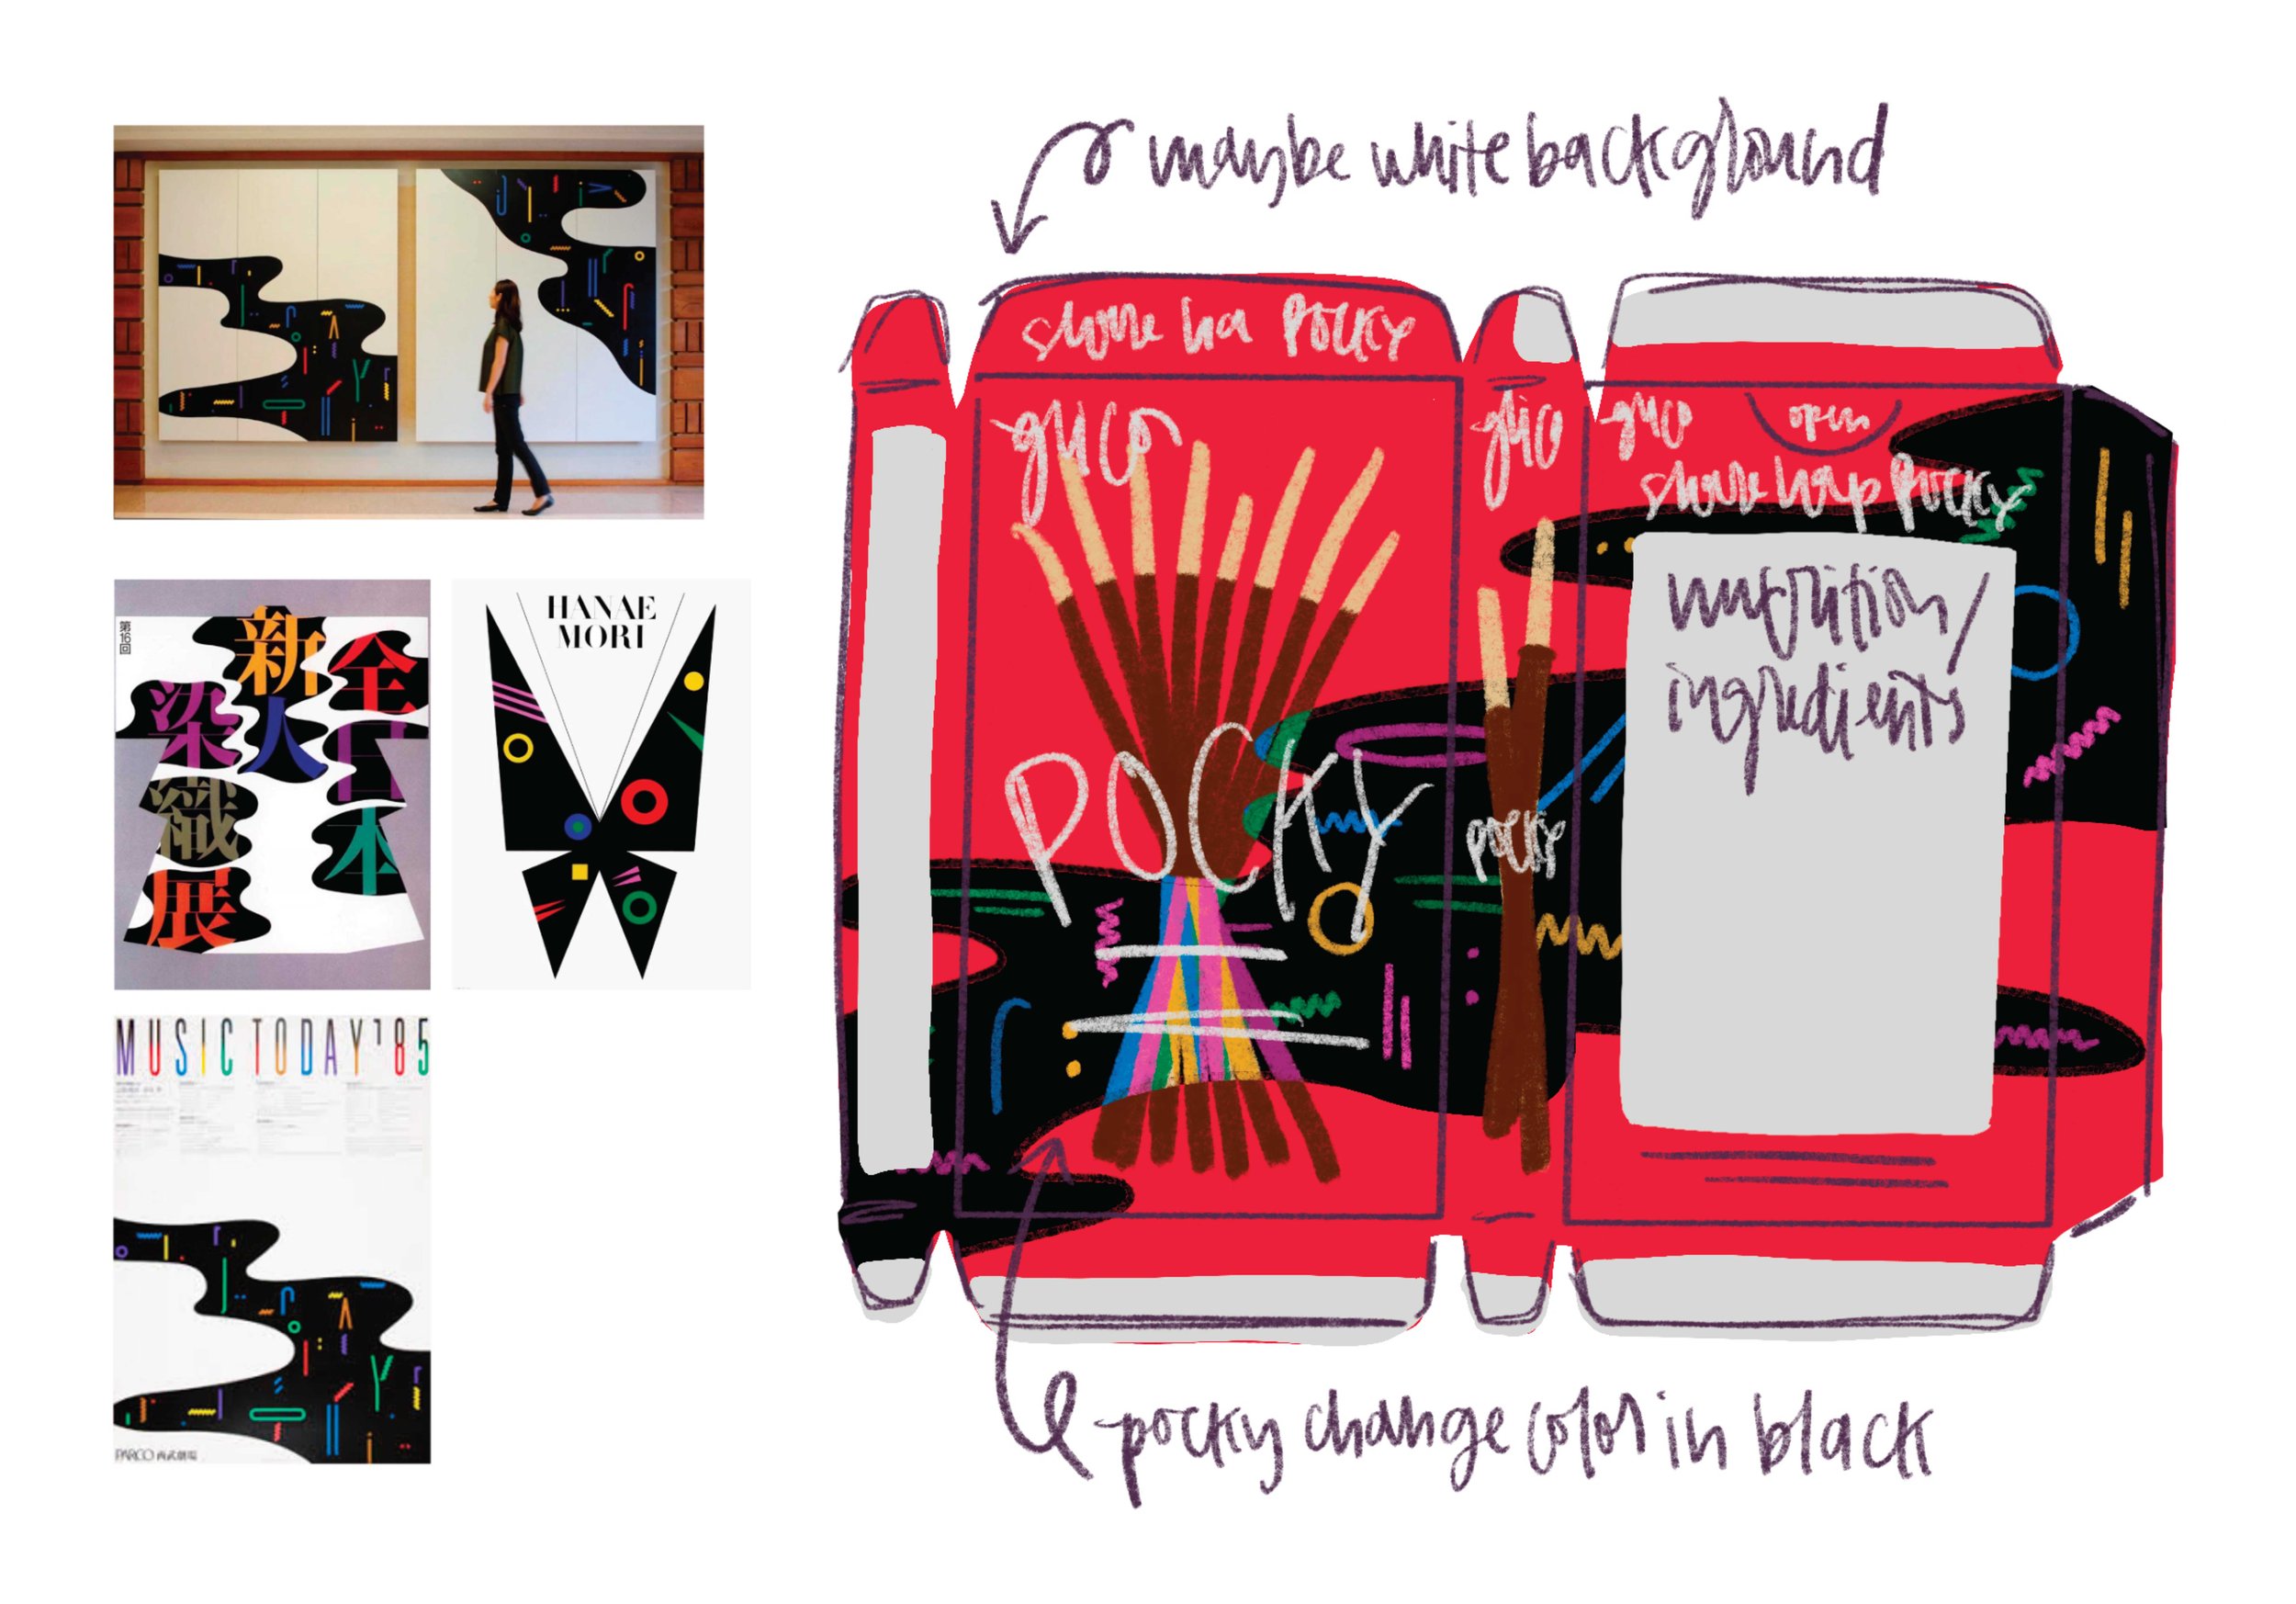 maybe white background
share ha Pocky
glico
glico
glico
open
share hap Pocky
nutrition/
ingredients
POCKY
pocky
pocky change color in black
第16回
全日本
新人
染織展
HANAE
MORI
MUSIC TODAY '85
PARCO 西武劇場